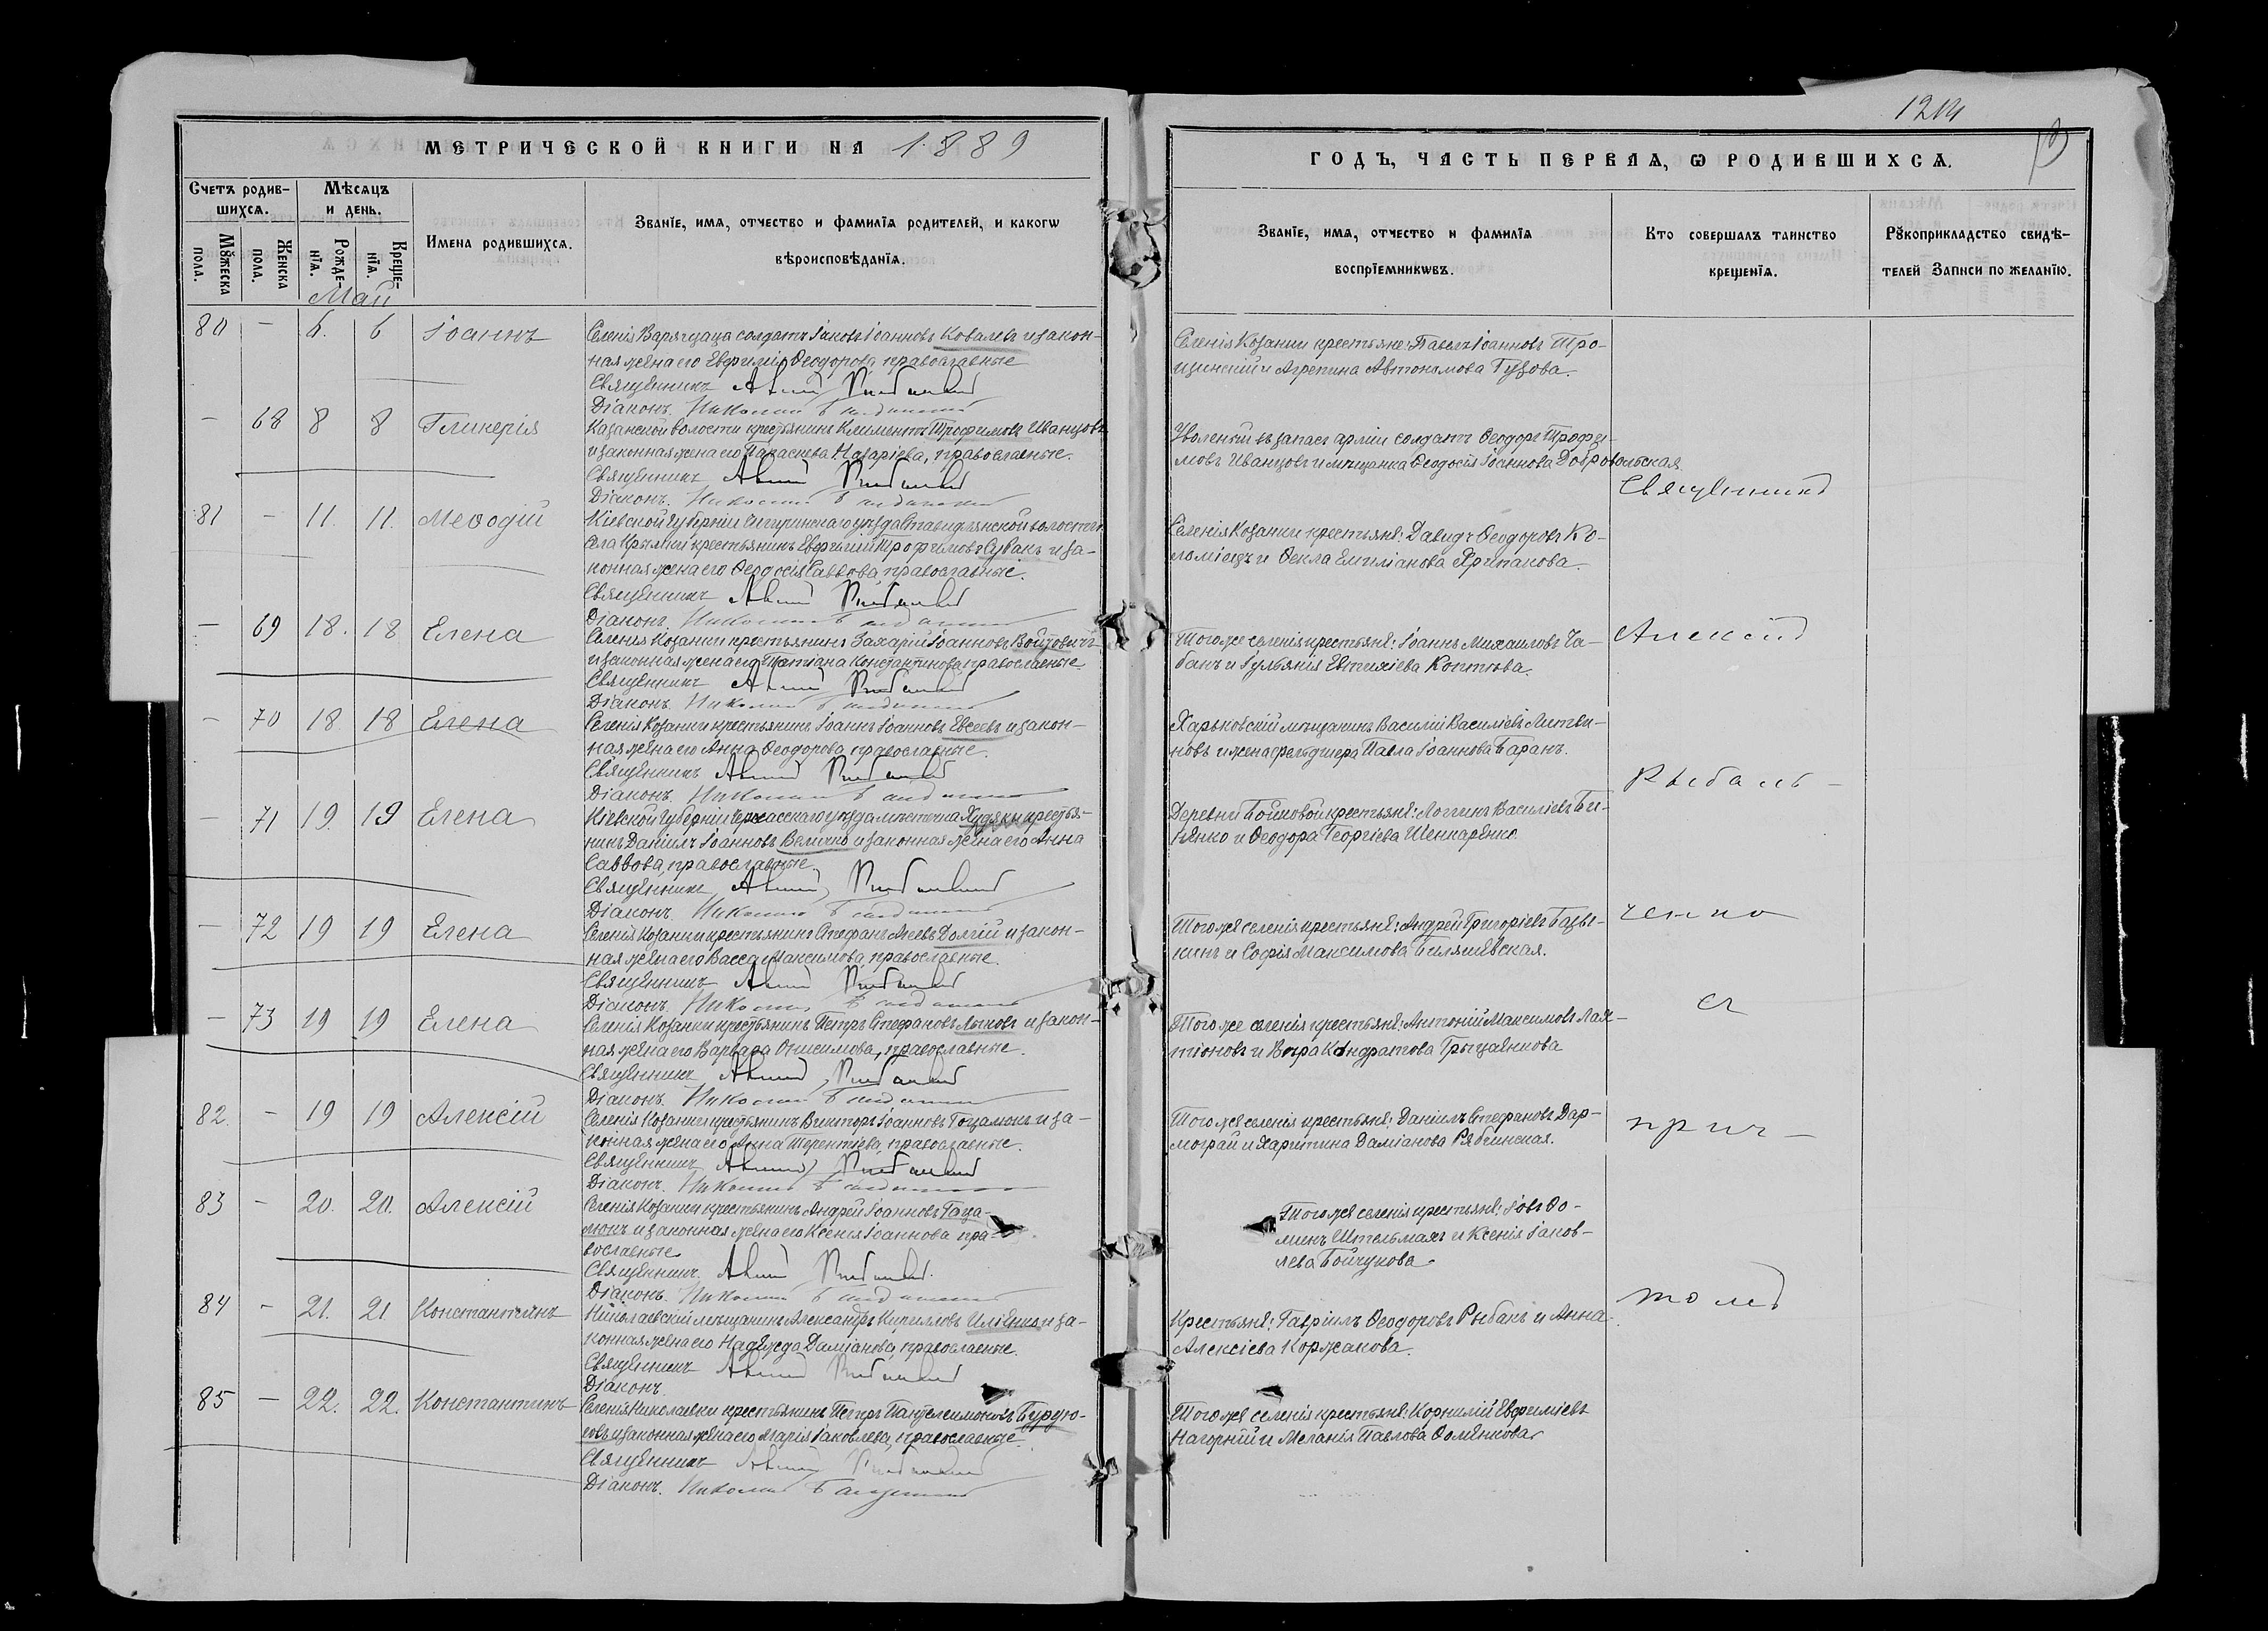 1214
МЕТРИЧЕСКОЙ КНИГИ НА 1889
ГОДЪ, ЧАСТЬ ПЕРВАѦ, Ѡ РОДИВШИХСѦ.
Счетъ родив-
шихсѧ.
Мꙋжеска пола.
Женска пола.
Мѣсѧцъ
и день.
Рожде-
нїѧ.
Креще-
нїѧ.
Имена родившихсѧ.
Званїе, имѧ, отчество и фамилїѧ родителей, и какогѡ
вѣроисповѣданїѧ.
Званїе, имѧ, отчество и фамилїѧ
воспрїемникѡвъ.
Кто совершалъ таинство
крещенїѧ.
Рꙋкоприкладство свидѣ-
телей записи по желанїю.
Май
80 — 6. 6 Іоаннъ
Селенія Варягцаца солдатъ Іаковъ Іоанновъ Ковалевъ и закон-
ная жена его Евфимія Ѳеодорова, православные
Священникъ
Діаконъ. Николай
Селенія Козанки крестьяне: Павелъ Іоанновъ Тро-
щинскій и Агрепина Автономова Гузова.
— 68 8 8 Гликерія
Казанской волости крестьянинъ Климентъ Трофимовъ Иванцовъ
и законная жена его Параскева Назаріева, православные.
Священникъ
Діаконъ. Николай
Уволенный въ запасъ арміи солдатъ Ѳеодоръ Трофи-
мовъ Иванцовъ и мѣщанка Ѳеодосія Іоаннова Добровольская.
81 — 11. 11. Меѳодій
Кіевской губерніи Чигиринскаго уѣзда Ставидлянской волости
села Крымки крестьянинъ Евфимій Трофимовъ Сувакъ и за-
конная жена его Ѳеодосія Саввова, православные.
Священникъ
Діаконъ. Николай
Селенія Козанки крестьяне: Давидъ Ѳеодоровъ Ко-
ломіецъ и Ѳекла Емиліанова Хрипакова.
— 69 18. 18 Елена
Селенія Козанки крестьянинъ Захарій Іоанновъ Войцовичъ
и законная жена его Татіана Константинова, православные.
Священникъ
Діаконъ. Николай
Того же селенія крестьяне: Іоаннъ Михаиловъ Ча-
банъ и Іульянія Евтихіева Коптева.
— 70 18. 18 Елена
Селенія Козанки крестьянинъ Іоаннъ Іоанновъ Евсеевъ и закон-
ная жена его Анна Ѳеодорова, православные.
Священникъ
Діаконъ. Николай
Харьковскій мѣщанинъ Василій Василіевъ Литви-
новъ и жена фельдшера Павла Іоаннова Баранъ.
— 71 19. 19 Елена
Кіевской губерніи Черкасскаго уѣзда мѣстечка Худяки крестья-
нинъ Даніилъ Іоанновъ Величко и законная жена его Анна
Саввова, православные.
Священникъ
Діаконъ. Николай
Деревни Бойковой крестьяне: Логгинъ Василіевъ Би-
ненко и Ѳеодора Георгіева Шенкаренко
— 72 19 19 Елена
Селенія Козанки крестьянинъ Стефанъ Агеевъ Долгій и закон-
ная жена его Васса Максимова, православные.
Священникъ
Діаконъ. Николай
Того же селенія крестьяне: Андрей Григоріевъ Базы-
кинъ и Софія Максимова Биляшевская.
— 73 19 19 Елена
Селенія Козанки крестьянинъ Петръ Стефановъ Лыковъ и закон-
ная жена его Варвара Онисимова, православные.
Священникъ
Діаконъ. Николай
Того же селенія крестьяне: Антоній Максимовъ Лак-
тіоновъ и Вѣра Кондратова Грыценкова
82. — 19 19 Алексій
Селенія Козанки крестьянинъ Викторъ Іоанновъ Гоцалюкъ и за-
конная жена его Анна Терентіева, православные.
Священникъ
Діаконъ. Николай
Того же селенія крестьяне: Даніилъ Стефановъ Дар-
мограй и Харитина Даміанова Рябчинская.
83 — 20. 20. Алексій
Селенія Козанки крестьянинъ Андрей Іоанновъ Гаца-
люкъ и законная жена его Ксенія Іоаннова пра-
вославные
Священникъ.
Діаконъ. Николай
Того же селенія крестьяне: Іовъ Ѳо-
минъ Штельмахъ и Ксенія Іаков-
лева Бойчукова.
84 — 21. 21. Константинъ
Николаевскій мѣщанинъ Александръ Кирилловъ Иліенко и за-
конная жена его Надежда Даміанова, православные.
Священникъ
Діаконъ.
Крестьяне: Гавріилъ Ѳеодоровъ Рыбакъ и Анна
Алексіева Коржакова.
85 — 22. 22. Константинъ
Селенія Николаевки крестьянинъ Петръ Пантелеимоновъ Бурдю-
говъ и законная жена его Марія Іаковлева, православные.
Священникъ
Діаконъ. Николай
Того же селенія крестьяне: Корнилій Евфиміевъ
Нагорный и Меланія Павлова Ѳоменкова
Священникъ
Алексій
Рыбаль-
ченко
съ
прич-
томъ